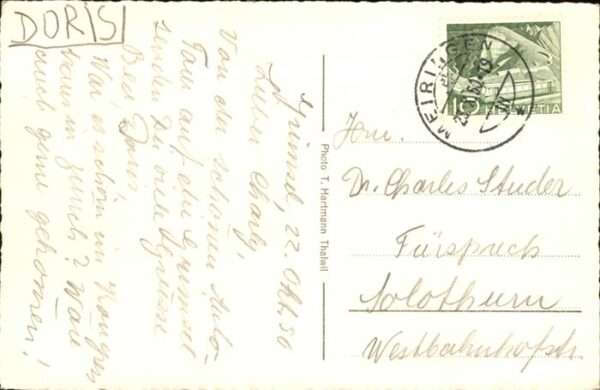 DORIS
Grimsel, 22. Okt. 50
Lieber Charly,
Von der schönen Auto-
Tour auf die Grimsel
sendet Dir viele Grüsse
Bea Doris
War es schön im Kongress-
haus in Zürich? Wäre
auch gerne gekommen!
Photo T. Hartmann Thalwil
MEIRINGEN
10
HELVETIA
Hrn.
Dr. Charles Studer
Fürsprech
Solothurn
Westbahnhofstr.